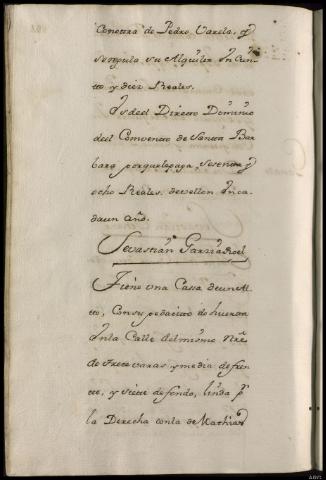 Conotra de Pedro Varela, y
se regula su Alquiler En Cien-
to y diez Reales.
Es del Directo Dominio
del Convento de Santa Bar-
bara por que le paga, sesenta y
ocho Reales de vellon En ca-
da un año.
Sevastian Garzia Roel
Tiene una Cassa de un Al-
to, Con su pedacito de huerta
En la Calle del mismo Nre
de trece varas y media de fren
te, y siete de fondo, linda pr
la Derecha con la de Mathias